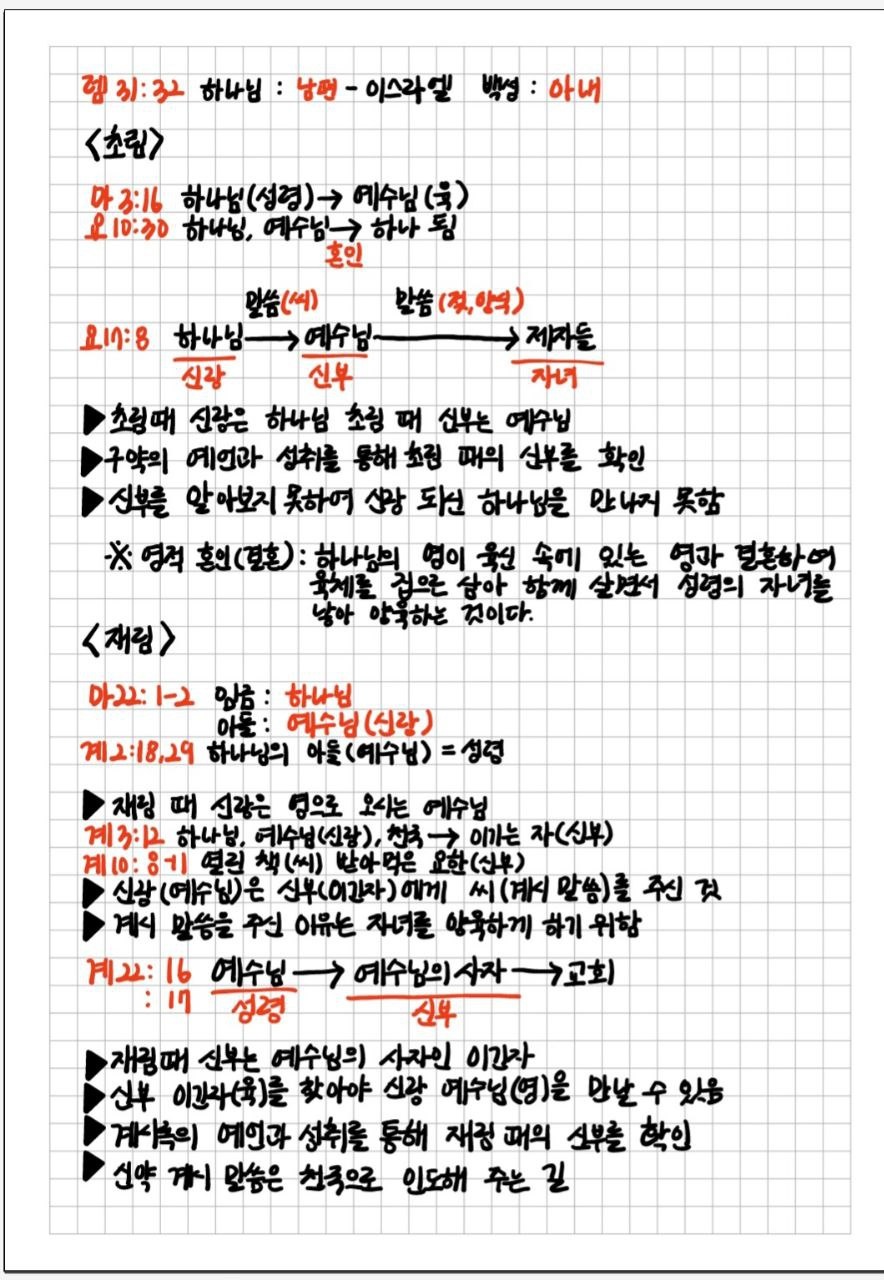 렘 31:32 하나님 : 남편 - 이스라엘 백성 : 아내
<초림>
마 3:16 하나님(성령)→ 예수님(육)
요 10:30 하나님, 예수님→ 하나 됨
혼인
말씀(씨) 말씀(젖,양식)
요17:8 하나님→예수님→제자들
신랑 신부 자녀
▶초림때 신랑은 하나님 초림 때 신부는 예수님
▶구약의 예언과 성취를 통해 초림 때의 신부를 확인
▶신부를 알아보지 못하여 신랑 되신 하나님을 만나지 못함
※ 영적 혼인(결혼): 하나님의 영이 육신 속에 있는 영과 결혼하여
육체를 집으로 삼아 함께 살면서 성령의 자녀를
낳아 양육하는 것이다.
<재림>
마22:1-2 임금 : 하나님
아들 : 예수님(신랑)
계2:18,29 하나님의 아들(예수님) = 성령
▶재림 때 신랑은 영으로 오시는 예수님
계3:12 하나님, 예수님(신랑), 천국→ 이기는 자(신부)
계10: 8-11 열린 책(씨) 받아먹은 요한(신부)
▶신랑(예수님)은 신부(이긴자)에게 씨(계시 말씀)를 주신 것
▶계시 말씀을 주신 이유는 자녀를 양육하게 하기 위함
계22: 16 예수님→예수님의 사자→교회
: 17 성령 신부
▶재림때 신부는 예수님의 사자인 이긴자
▶신부 이긴자(육)를 찾아야 신랑 예수님(영)을 만날 수 있음
▶계시록의 예언과 성취를 통해 재림 때의 신부를 확인
▶신약 계시 말씀은 천국으로 인도해 주는 길